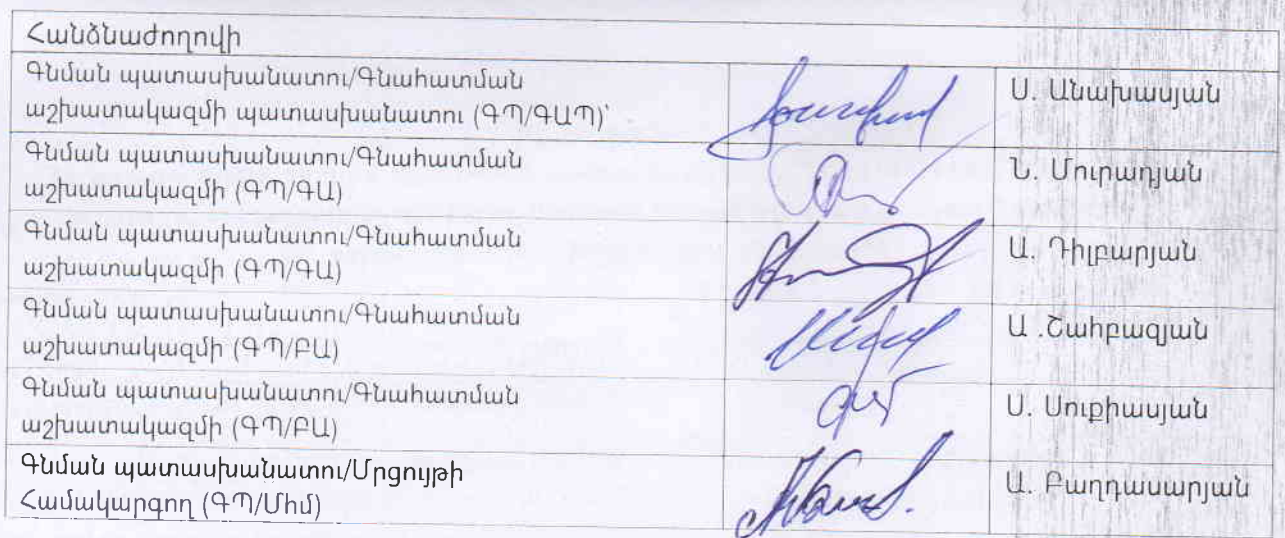 Հանձնաժողովի
Գնման պատասխանատու/Գնահատման
աշխատակազմի պատասխանատու (ԳՊ/ԳԱՊ)՝
Ս. Անախասյան
Գնման պատասխանատու/Գնահատման
աշխատակազմի (ԳՊ/ԳԱ)
Ն. Մուրադյան
Գնման պատասխանատու/Գնահատման
աշխատակազմի (ԳՊ/ԳԱ)
Ա. Դիլբարյան
Գնման պատասխանատու/Գնահատման
աշխատակազմի (ԳՊ/ԲԱ)
Ա .Շահբազյան
Գնման պատասխանատու/Գնահատման
աշխատակազմի (ԳՊ/ԲԱ)
Ս. Սուքիասյան
Գնման պատասխանատու/Մրցույթի
Համակարգող (ԳՊ/Միմ)
Ա. Բաղդասարյան